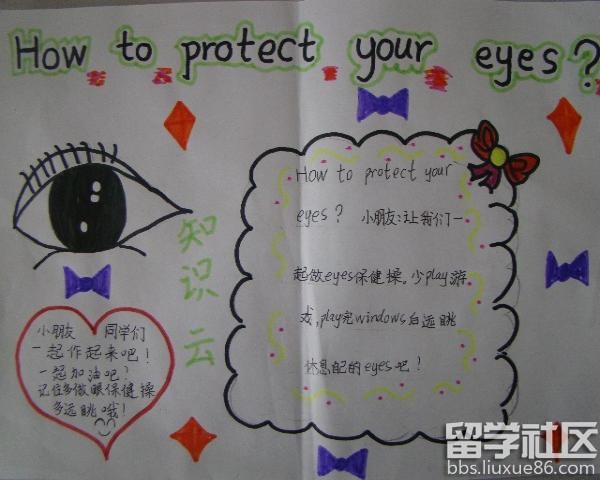 How to protect your eyes?
知
识
云
How to protect your
eyes? 小朋友:让我们一
起做eyes保健操。少play游
戏,play完windows后远眺
休息自己的eyes吧!
小朋友 同学们
一起作起来吧!
一起加油吧?
记住多做眼保健操
多远眺哦!
留学社区
bbs.liuxue86.com